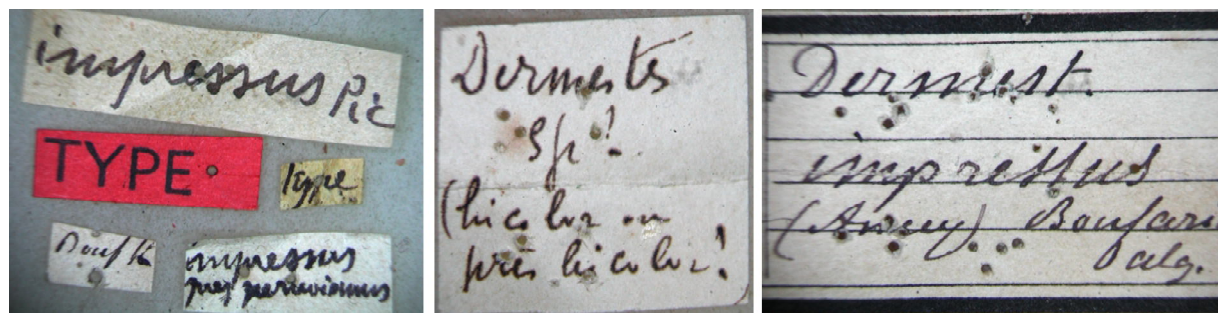 impressus Pic
TYPE
type
impressus
près peruvianus
Dermestes
sp!
(bicolor ou
près bicolor!
Dermest.
impressus
(Ancey) Boufari
alg.